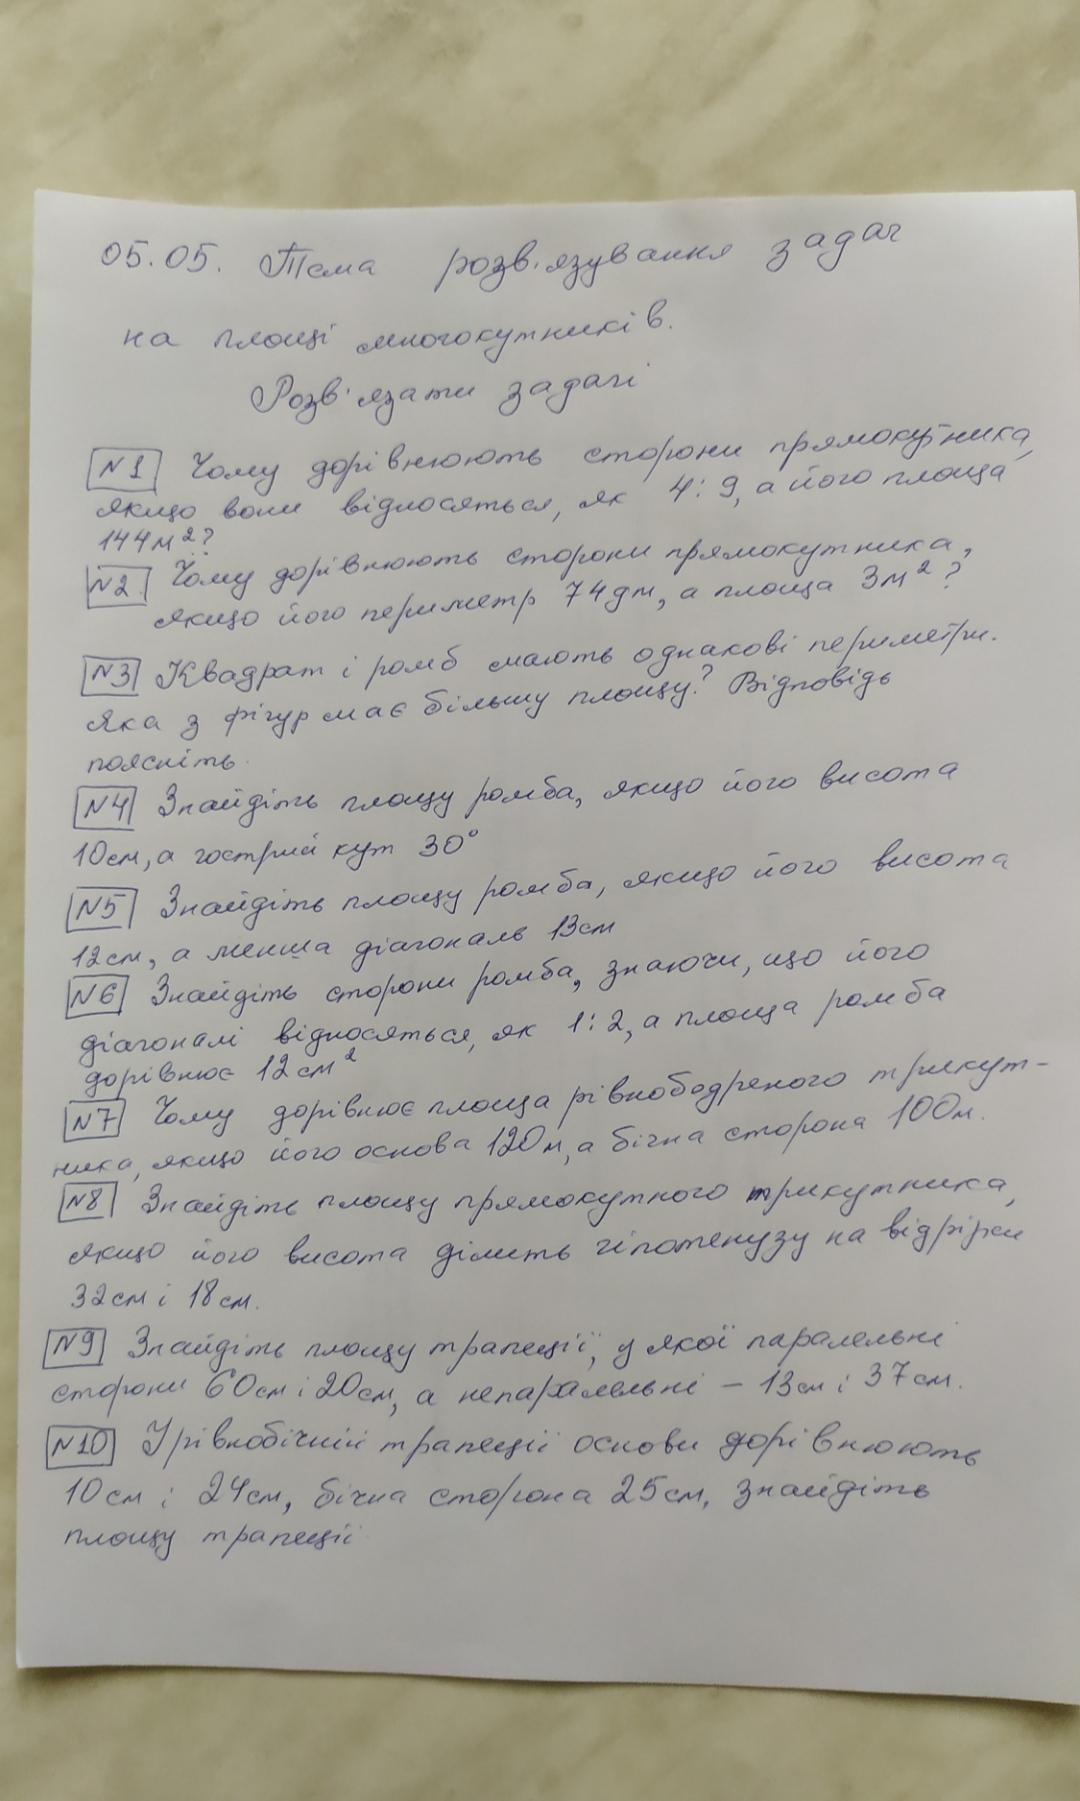 05.05. Тема розв'язування задач
на площі многокутників.
Розв'язати задачі
N1 Чому дорівнюють сторони прямокутника,
якщо вони відносяться, як 4:9, а його площа
144м²?
N2 Чому дорівнюють сторони прямокутника,
якщо його периметр 74дм, а площа 3м²?
N3 Квадрат і ромб мають однакові периметри.
Яка з фігур має більшу площу? Відповідь
поясніть.
N4 Знайдіть площу ромба, якщо його висота
10см, а гострий кут 30°
N5 Знайдіть площу ромба, якщо його висота
12см, а менша діагональ 13см
N6 Знайдіть сторони ромба, знаючи, що його
діагоналі відносяться, як 1:2, а площа ромба
дорівнює 12см²
N7 Чому дорівнює площа рівнобедреного трикут-
ника, якщо його основа 120м, а бічна сторона 100м.
N8 Знайдіть площу прямокутного трикутника,
якщо його висота ділить гіпотенузу на відрізки
32см і 18см.
N9 Знайдіть площу трапеції, у якої паралельні
сторони 60см і 20см, а непаралельні - 13см і 37см.
N10 У рівнобічній трапеції основи дорівнюють
10см і 24см, бічна сторона 25см, знайдіть
площу трапеції